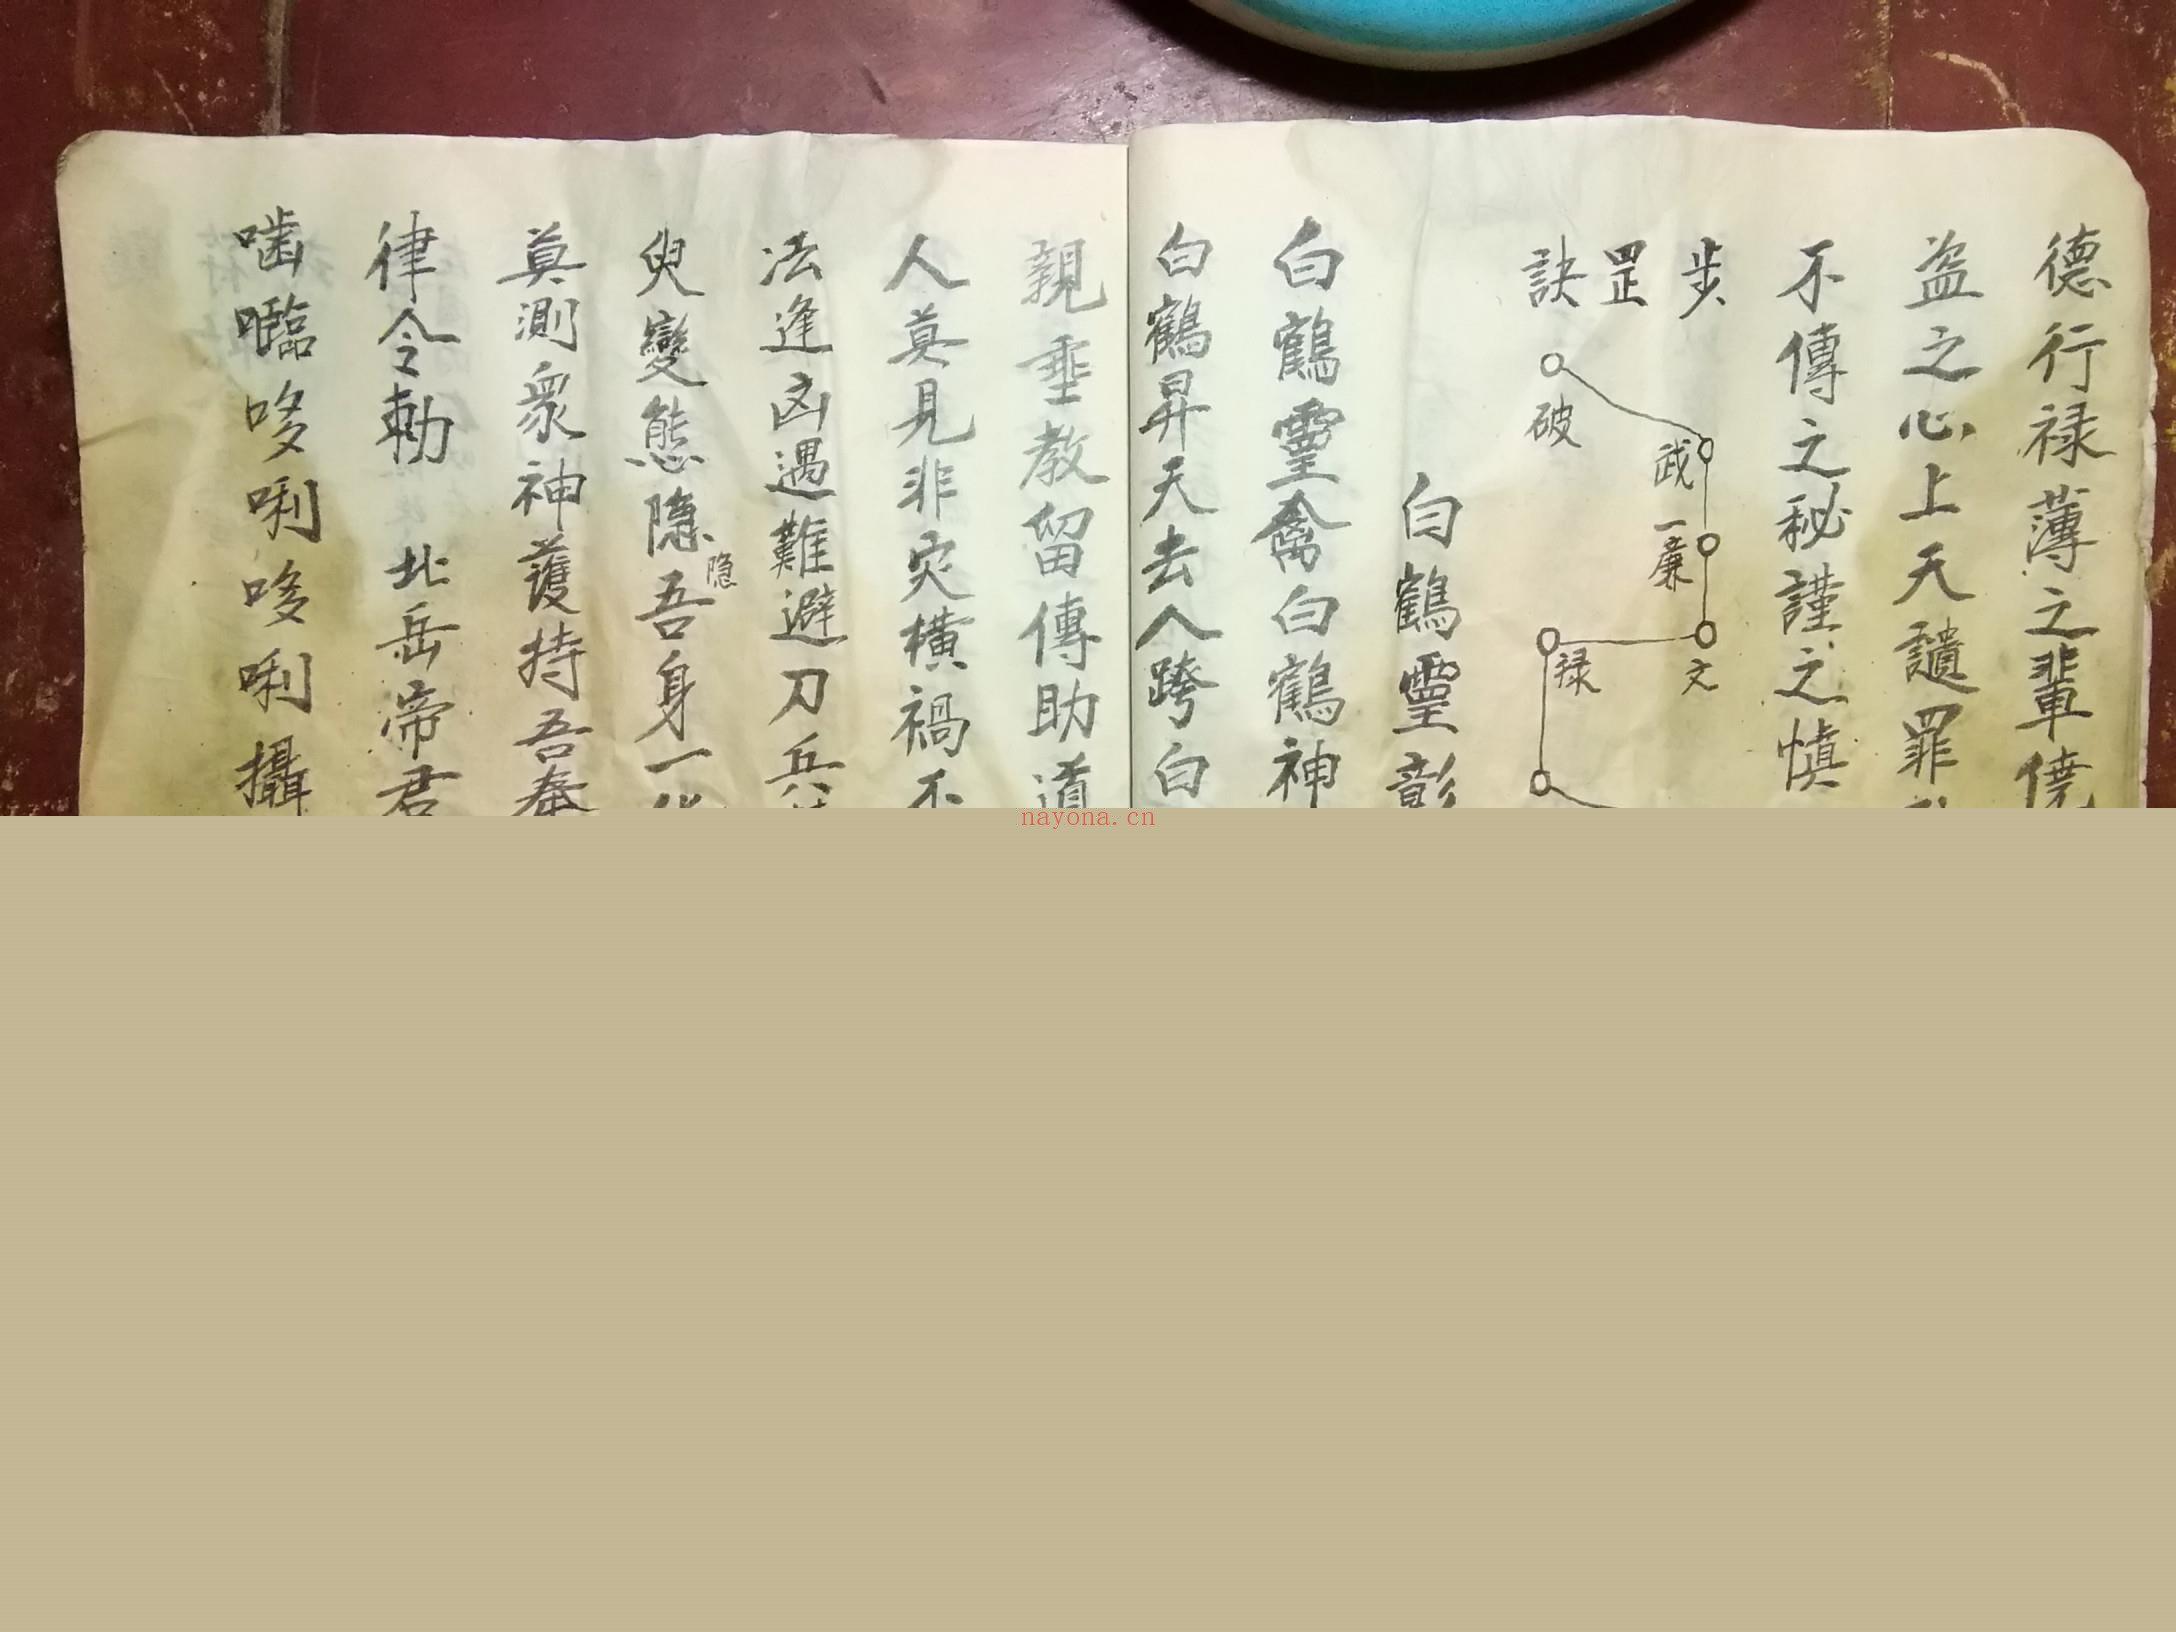 德行禄薄之輩僥
盗之心上天譴罪
不傳之秘謹之慎
步罡訣
破
武
一廉
文
禄
白鶴靈彰
白鶴靈禽白鶴神
白鶴昇天去人跨白
親垂教留傳助道
人莫見非灾横禍不
法逢凶遇難避刀兵
臾變態隐吾身一
隐
莫測衆神護持吾奉
律令勅 北岳帝君
嚙囓哆唎哆唎攝
nayona.cn